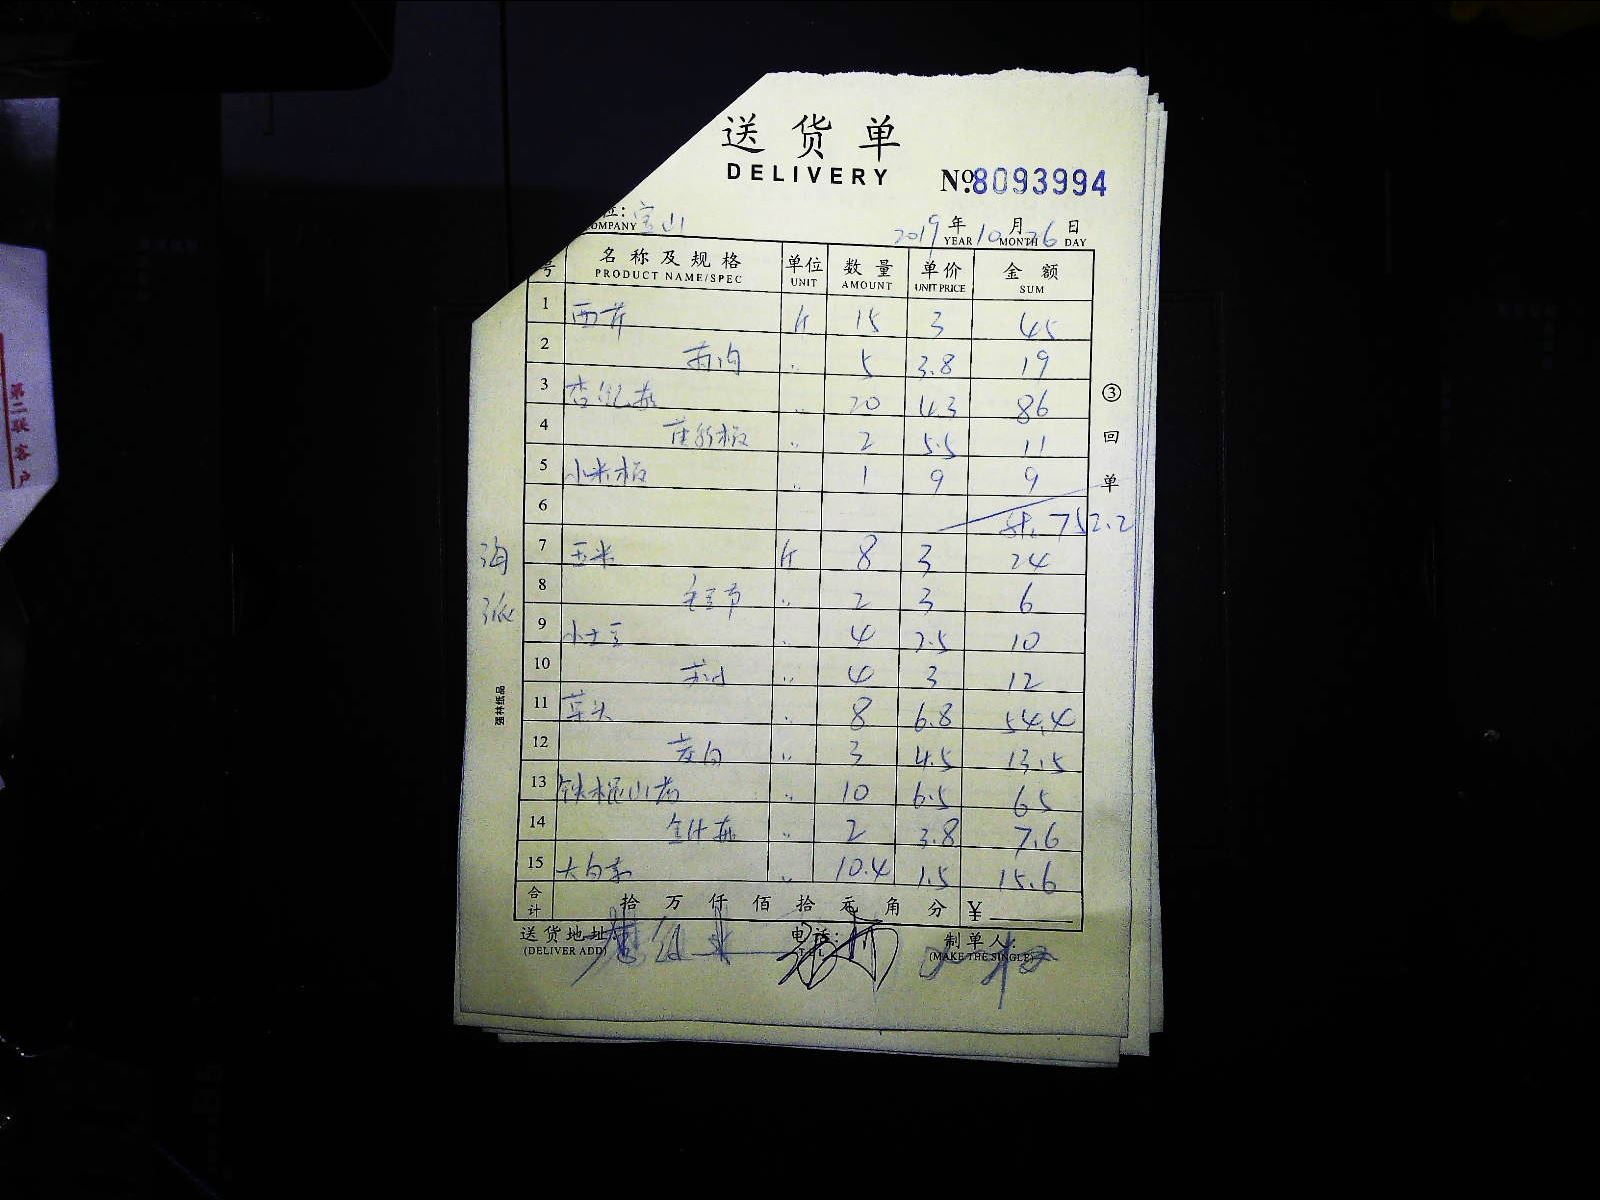 送货单
DELIVERY
№ 8093994
位: 宝山
COMPANY
2019 年 10 月 26 日
YEAR MONTH DAY
号 名称及规格 单位 数量 单价 金额
PRODUCT NAME/SPEC UNIT AMOUNT UNIT PRICE SUM
1 西芹 斤 15 3 45
2 〃 5 3.8 19
3 杏鲍菇 〃 20 4.3 86
4 〃 2 5.5 11
5 小米椒 〃 1 9 9
6 752.2
7 玉米 斤 8 3 24
8 〃 2 3 6
9 小土豆 〃 4 2.5 10
10 〃 4 3 12
11 〃 8 6.8 54.4
12 茭白 〃 3 4.5 13.5
13 铁棍山药 〃 10 6.5 65
14 金针菇 〃 2 3.8 7.6
15 大白菜 〃 10.4 1.5 15.6
合计 拾 万 仟 佰 拾 元 角 分 ¥
送货地址 电话: 制单人:
(DELIVER ADD) TEL (MAKE THE SINGLE)
③回单
海派
强林纸品
第二联客户